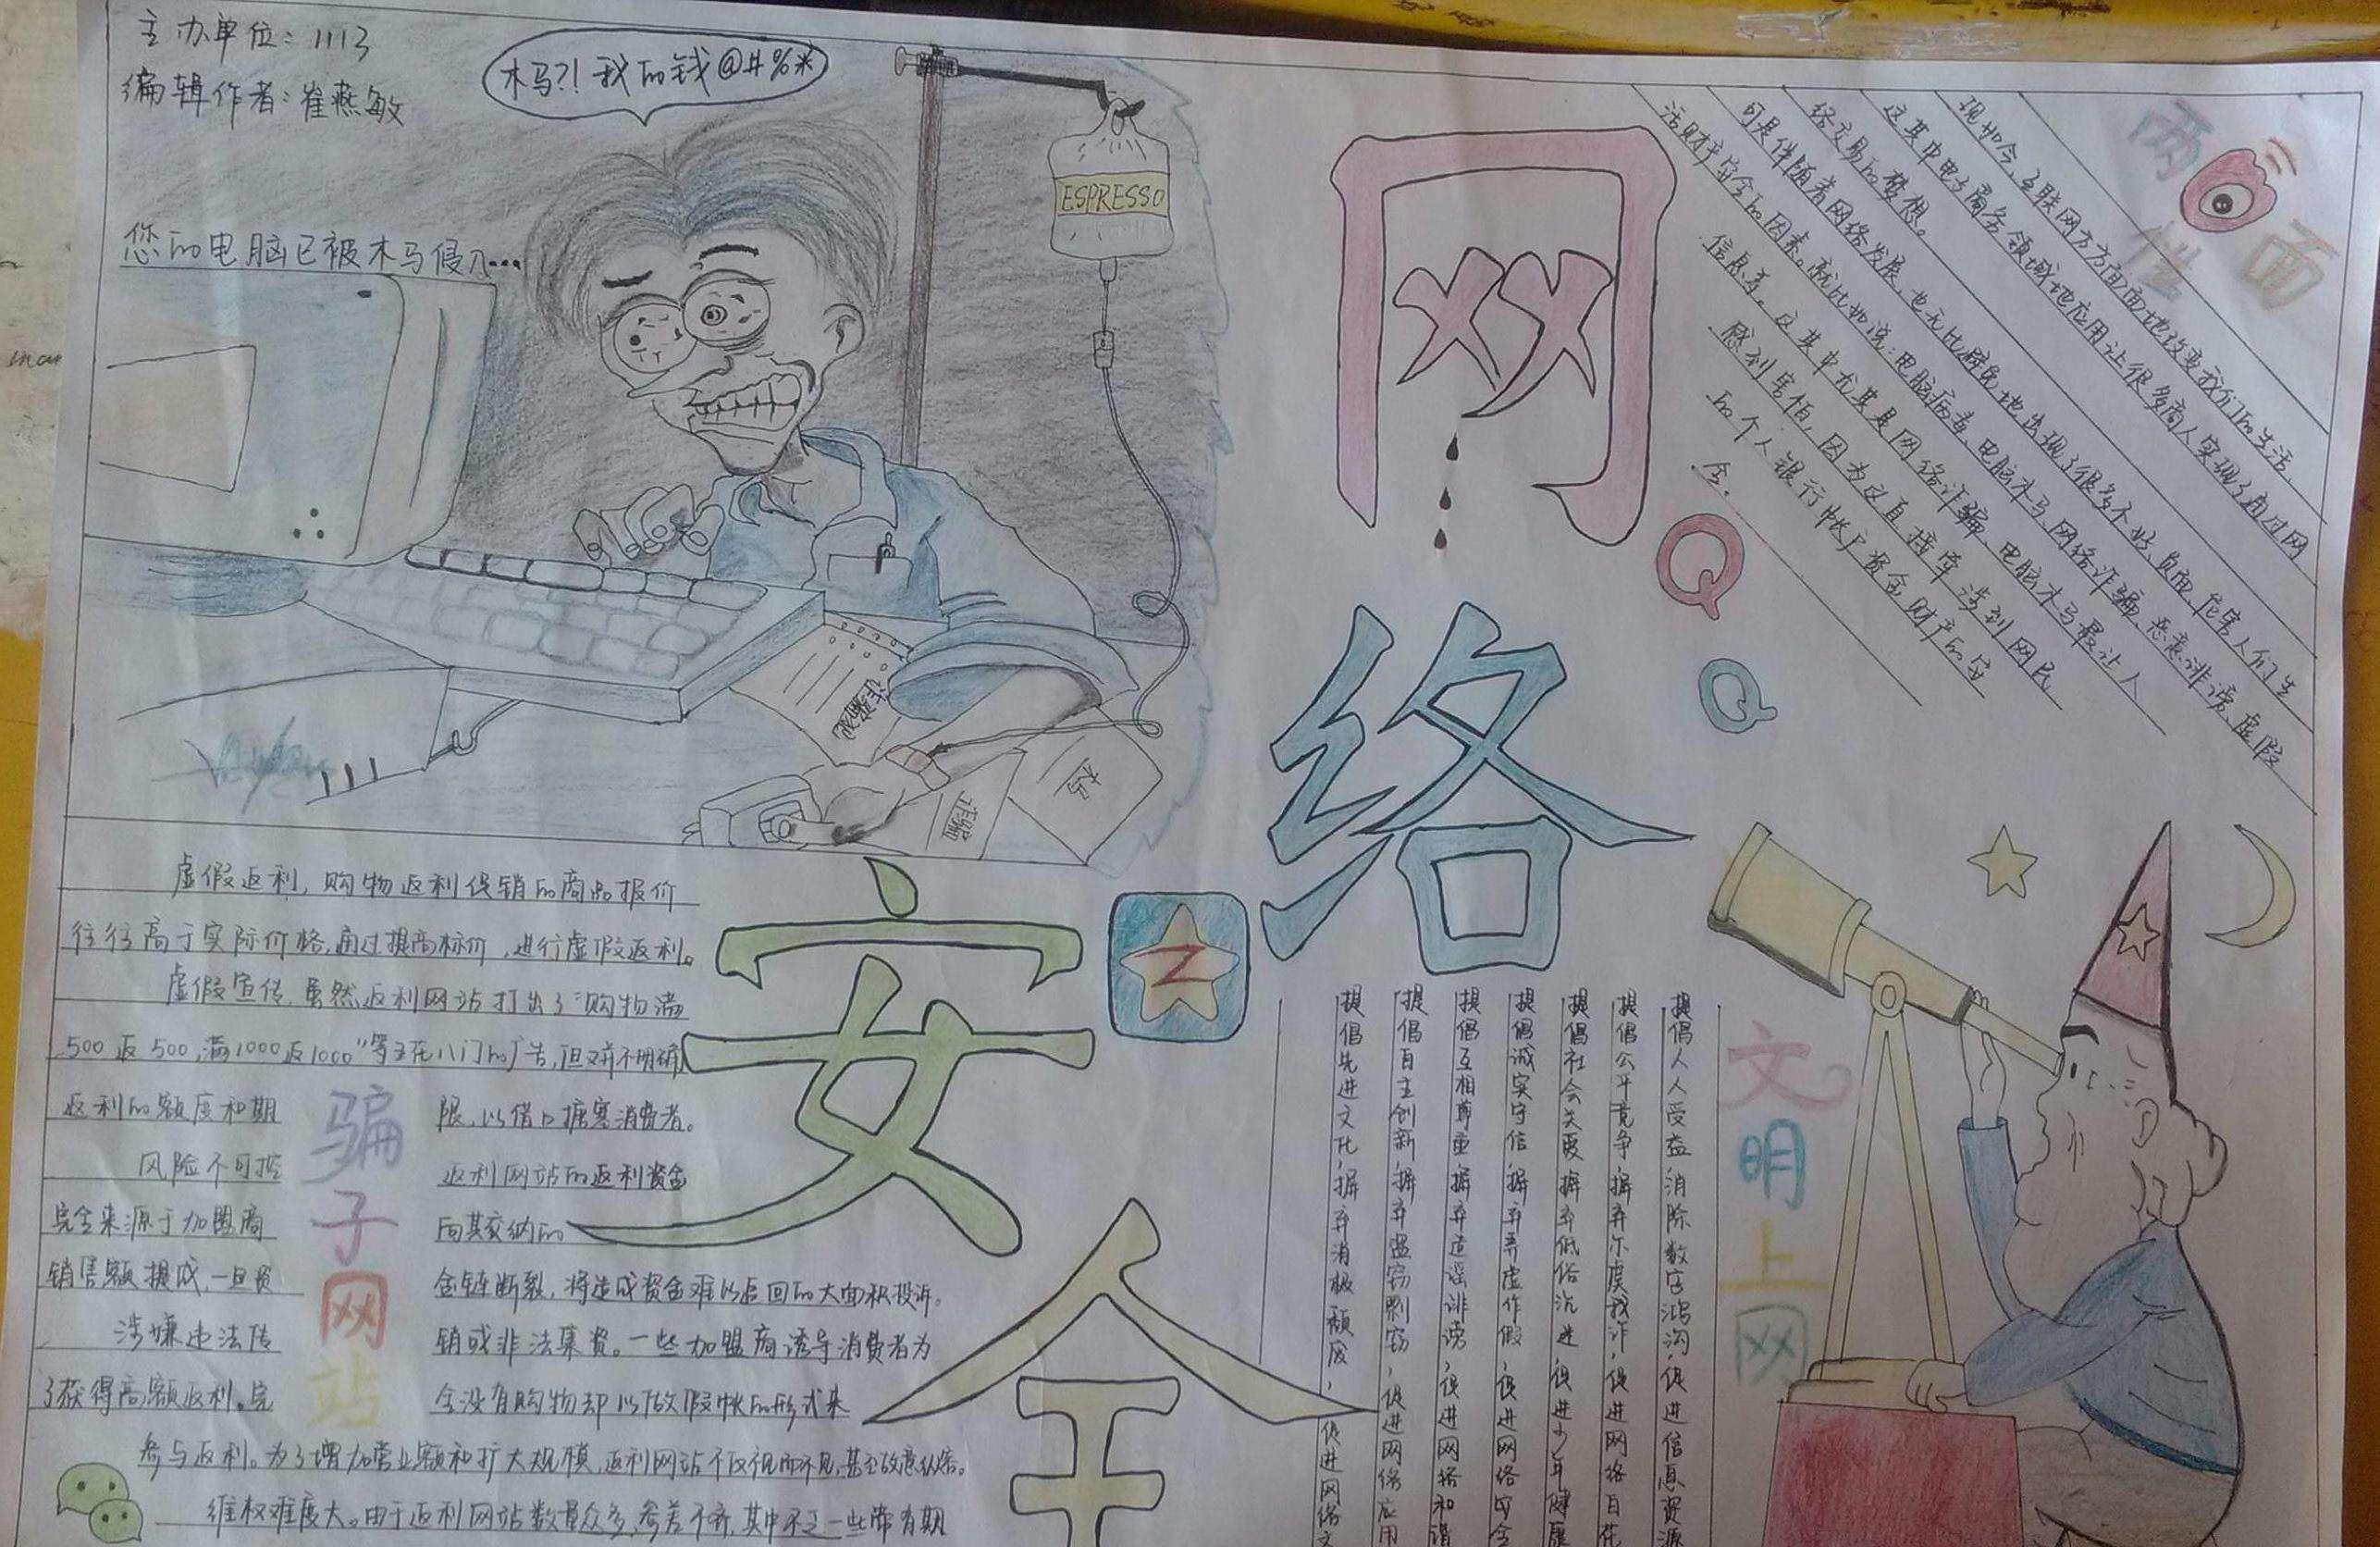 主办单位：1113
编辑作者：崔燕敏
木马?! 我的钱@#%*
您的电脑已被木马侵入...
ESPRESSO
诈骗犯
诈骗
木马
网络
安全
Z
Q
Q
两面性
现如今,互联网方方面面地改变我们的生活,
这其中电子商务领域地应用让很多商人实现了通过网
络交易的梦想。
可是伴随着网络发展,也无比避免地出现了很多不好负面,危害人们生
活财产安全的因素。就比如说:电脑病毒、电脑木马、网络诈骗、恶意诽谤、虚假
信息等。这其中尤其是网络诈骗、电脑木马最让人
感到害怕,因为这直接牵涉到网民
的个人银行帐户资金财产的安
全.
虚假返利，购物返利促销的商品报价
往往高于实际价格,通过提高标价,进行虚假返利。
虚假宣传,虽然返利网站打出了“购物满
500返500,满1000返1000”等五花八门的广告,但对并不明确
返利的额度和期限,以借口搪塞消费者。
风险不可控 返利网站的返利资金
完全来源于加盟商向其交纳的
销售额提成,一旦资金链断裂,将造成资金难以返回的大面积投诉。
涉嫌违法传销或非法集资。一些加盟商诱导消费者为
了获得高额返利。完全没有购物却以做假帐的形式来
参与返利。为了增加营业额和扩大规模,返利网站不仅视而不见,甚至故意纵容。
维权难度大。由于返利网站数量众多,参差不齐,其中不乏一些带有期
骗子网站
提倡先进文化,摒弃消极颓废,促进网络文
提倡自主创新,摒弃盗窃剽窃,促进网络应用
提倡互相尊重,摒弃造谣诽谤,促进网络和谐
提倡诚实守信,摒弃弄虚作假,促进网络安全
提倡社会关爱,摒弃低俗沉迷,促进少年健康
提倡公平竞争,摒弃尔虞我诈,促进网络百花
提倡人人受益,消除数字鸿沟,促进信息资源
文明上网